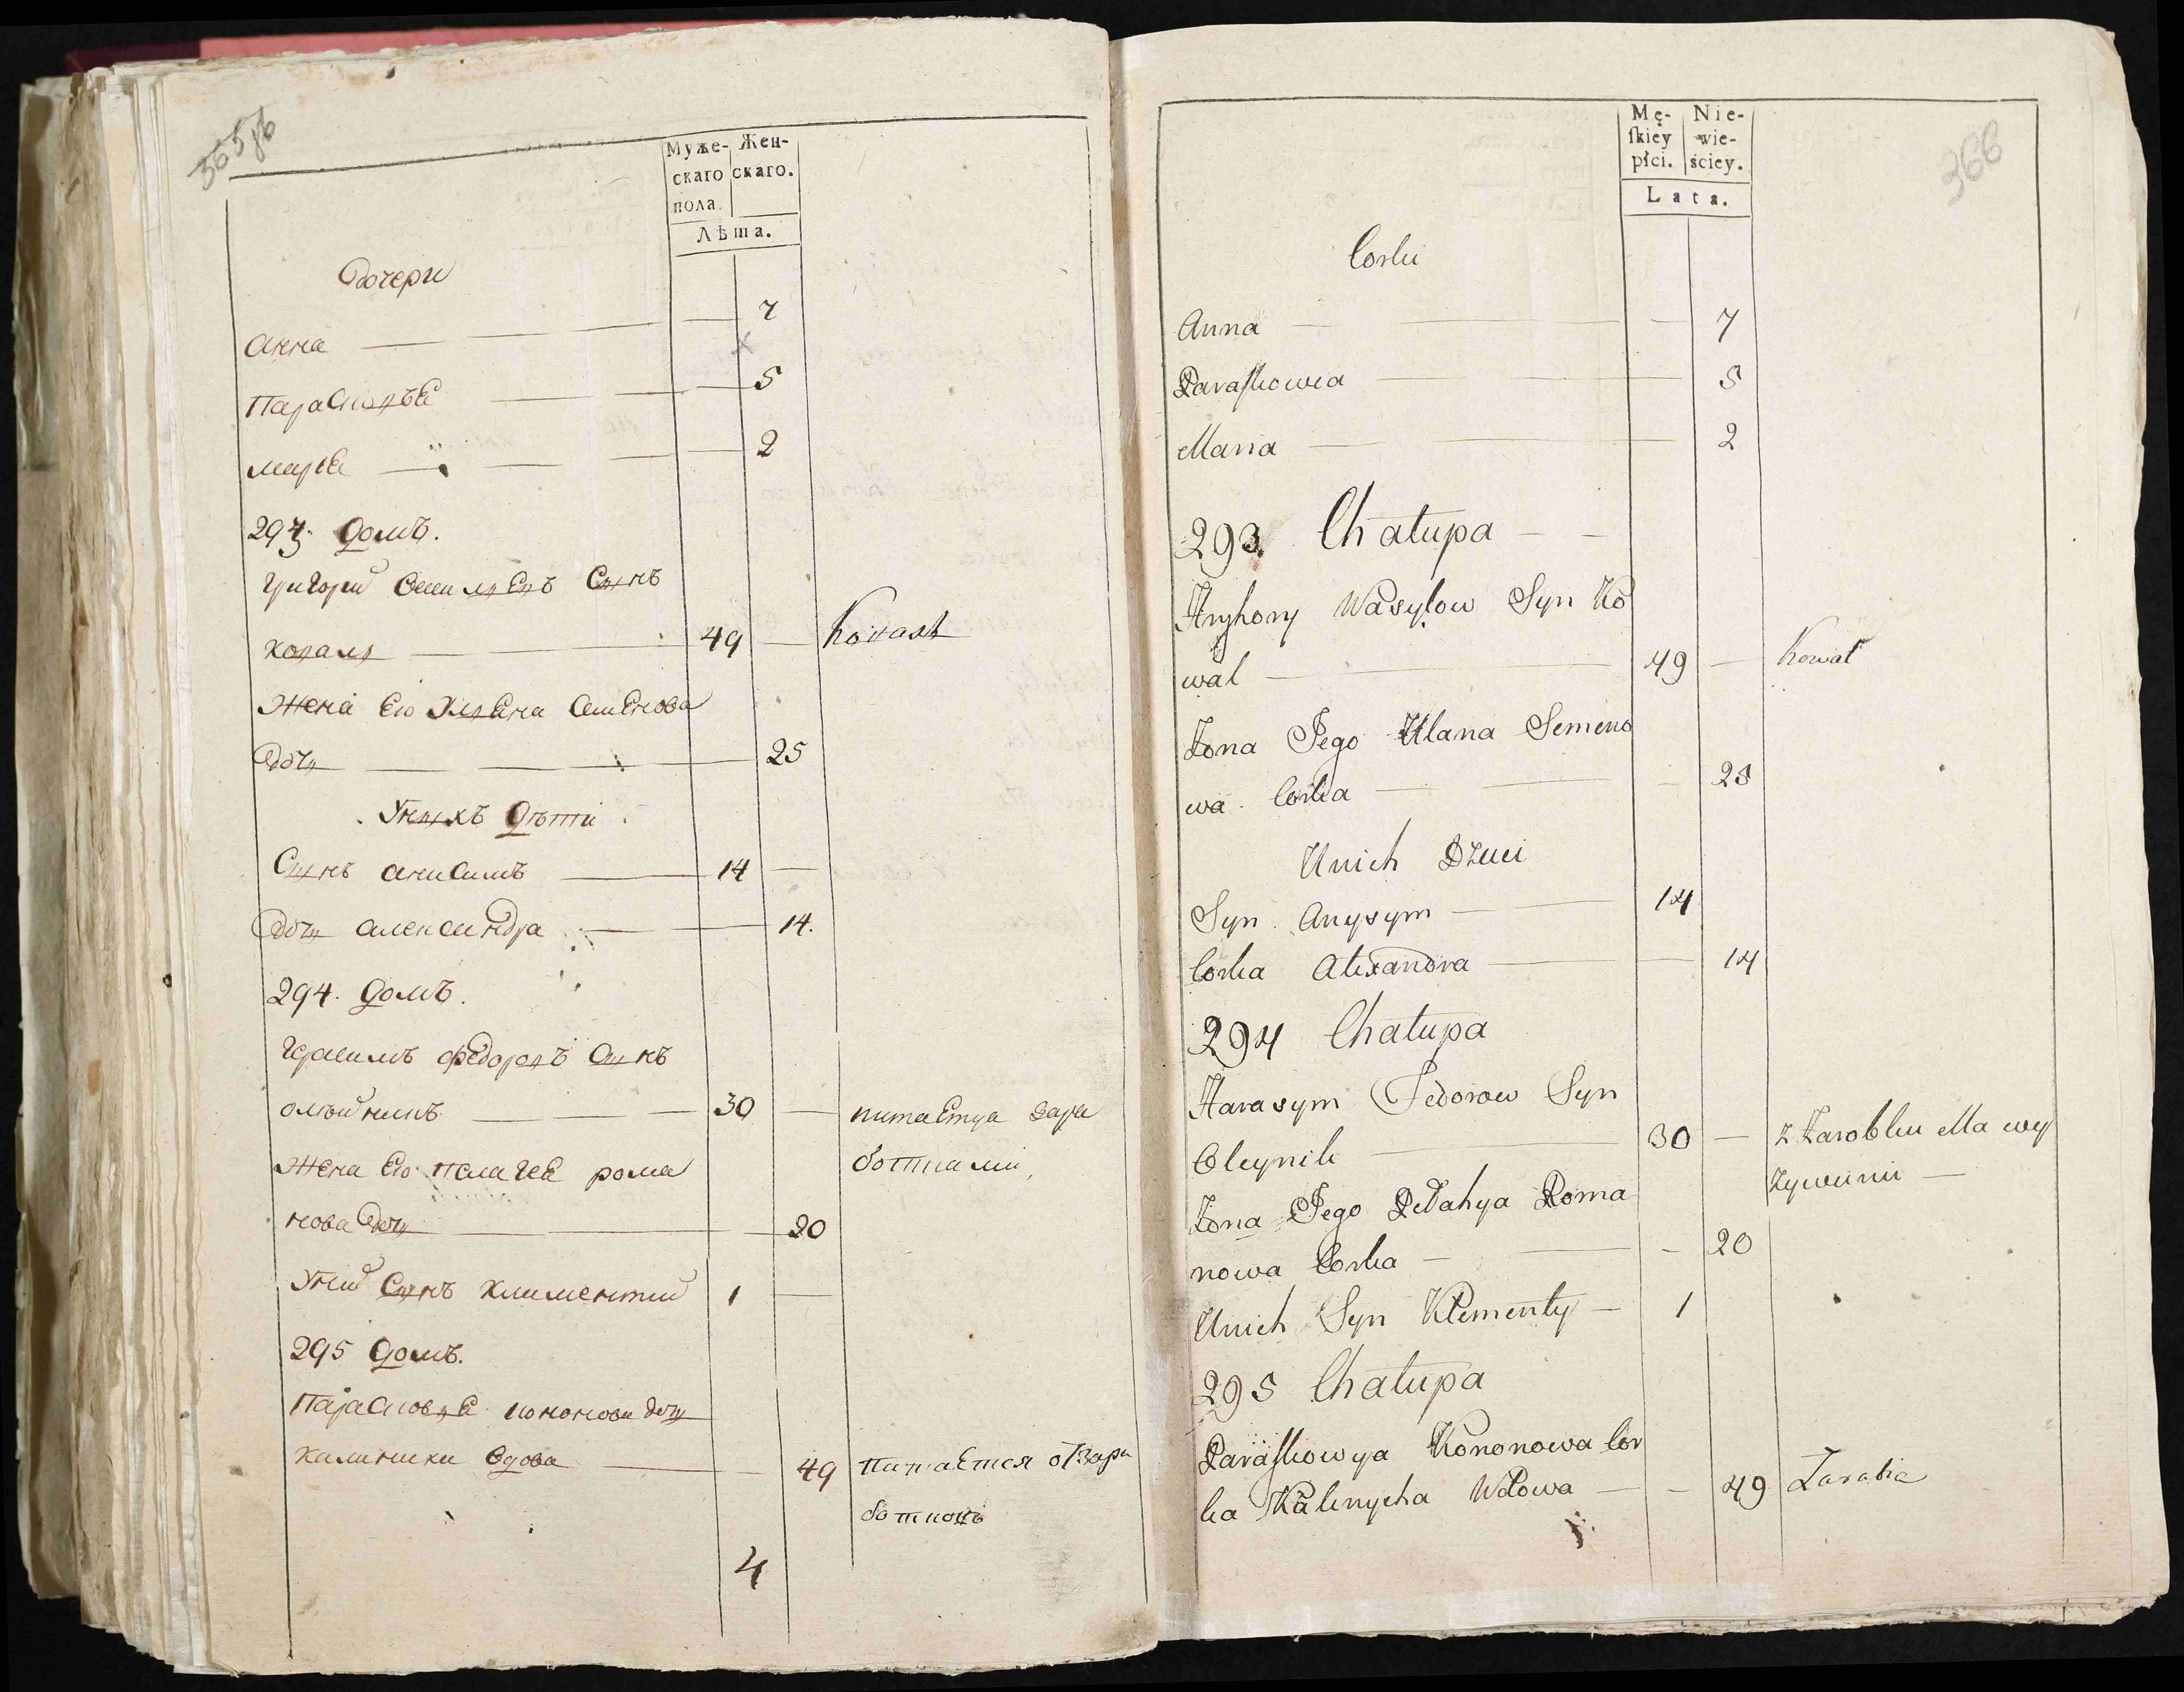 365об
Муже-
скаго
пола.
Жен-
скаго.
Лѣта.
Дочери
Анна — 7
Парасковьѣ — 5
Марья — 2
293. домъ.
Григорий Васильевъ Сынъ
Коваль — 49 — коваль
Жена Его Ульяна Семенова
Дочь — 25
У нихъ дѣти
Сынъ Анисимъ — 14 —
Дочь Александра — 14.
294. домъ.
Герасимъ Федоровъ Сынъ
Олейникъ — 30 — питаетца зара
ботками
Жена Его Пелагея Рома
нова Дочь — 20
У них Сынъ Климентий 1 —
295 домъ.
Парасковья Кононова дочь
Калиниха вдова — 49 питается от зара
ботковъ
4
366
Mę-
skiey
płci.
Nie-
wie-
ściey.
Lata.
Corki
Anna — 7
Paraskowia — 5
Maria — 2
293. Chałupa —
Hryhory Wasylow Syn Ko
wal — 49 — Kowal
Żona Jego Ulana Semeno
wa Corka — 25
U nich Dzieci
Syn Anysym — 14
Corka Alexandra — 14
294 Chałupa
Harasym Fedorow Syn
Oleynik — 30 — z Zarobku Ma wy
Żywienie —
Żona Jego Pelahya Roma
nowa Corka — 20
U nich Syn Klementy — 1
295 Chałupa
Paraskowya Kononowa Cor
ka Kalenycha Wdowa — 49 Zarabia